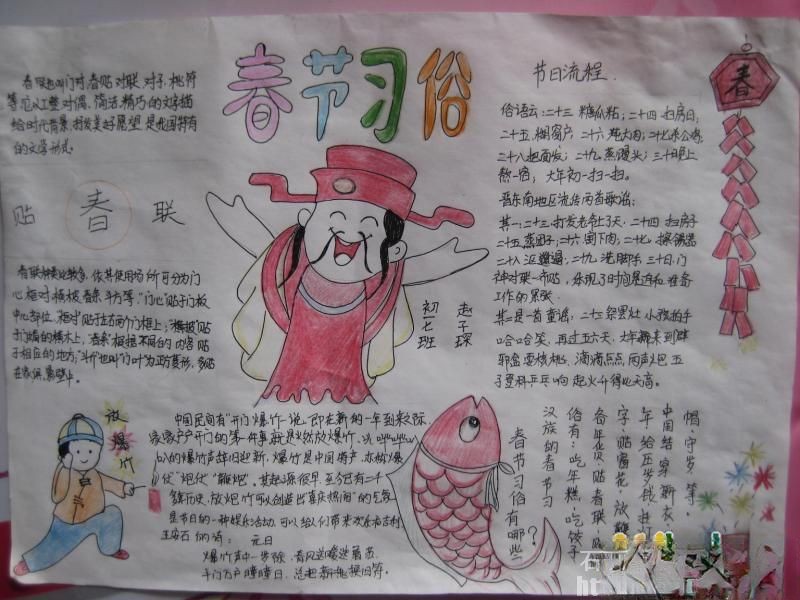 春节习俗
春联也叫门对、春贴、对联、对子、桃符
等,它以工整、对偶、简洁、精巧的文字描
绘时代背景,抒发美好愿望,是我国特有
的文学形式。
贴 春 联
春联种类比较多,依其使用场所,可分为门
心、框对、横披、春条、斗方等。"门心"贴于门板
中心部位,"框对"贴于左右两个门框上;"横披"贴
于门楣的横木上;"春条"根据不同的内容贴
于相应的地方;"斗斤"也叫"门叶",为正方菱形,多贴
在家俱、影壁上。
节日流程
俗语云:二十三糖瓜粘;二十四扫房日;
二十五,糊窗户,二十六炖大肉;二十七杀公鸡
二十八把面发;二十九蒸馒头;三十晚上
熬一宿;大年初一扭一扭。
晋东南地区流传两首歌谣:
其一:二十三,打发老爷上了天,二十四扫房子
二十五,蒸团子;二十六割下肉,二十七,擦锡器
二十八
二十九,洗脚手
三十日,门
神对联一齐贴
工作的紧张
其二是一首童谣,二十三祭罢灶,小孩拍手
哈哈笑。再过五六天,大年就来到
耍核桃,滴滴点点两声炮。五
子登科乒乓响,起火升得比天高。
春
初一七班
赵子琛
放爆竹
中国民间有"开门爆竹"一说。即在新的一年到来之际,
家家户户开门的第一件事就是燃放爆竹,以哔哔叭
叭的爆竹声辞旧迎新。爆竹是中国特产,亦称"爆
仗"、"炮仗"、"鞭炮"。其起源很早,至今已有二千
年历史。放炮竹可以创造出喜庆热闹的气氛
是节日的一种娱乐活动,可以给人们带来欢乐和吉利
王安石的诗: 元日
爆竹声中一岁除,春风送暖入屠苏
千门万户曈曈日,总把新桃换旧符。
春节习俗有哪些?
汉族的春节习
俗有:吃年糕、吃饺子
各年货、贴春联
字、贴窗花、放鞭
年给压岁钱、挂灯
中国结、穿新衣
帽、守岁等。